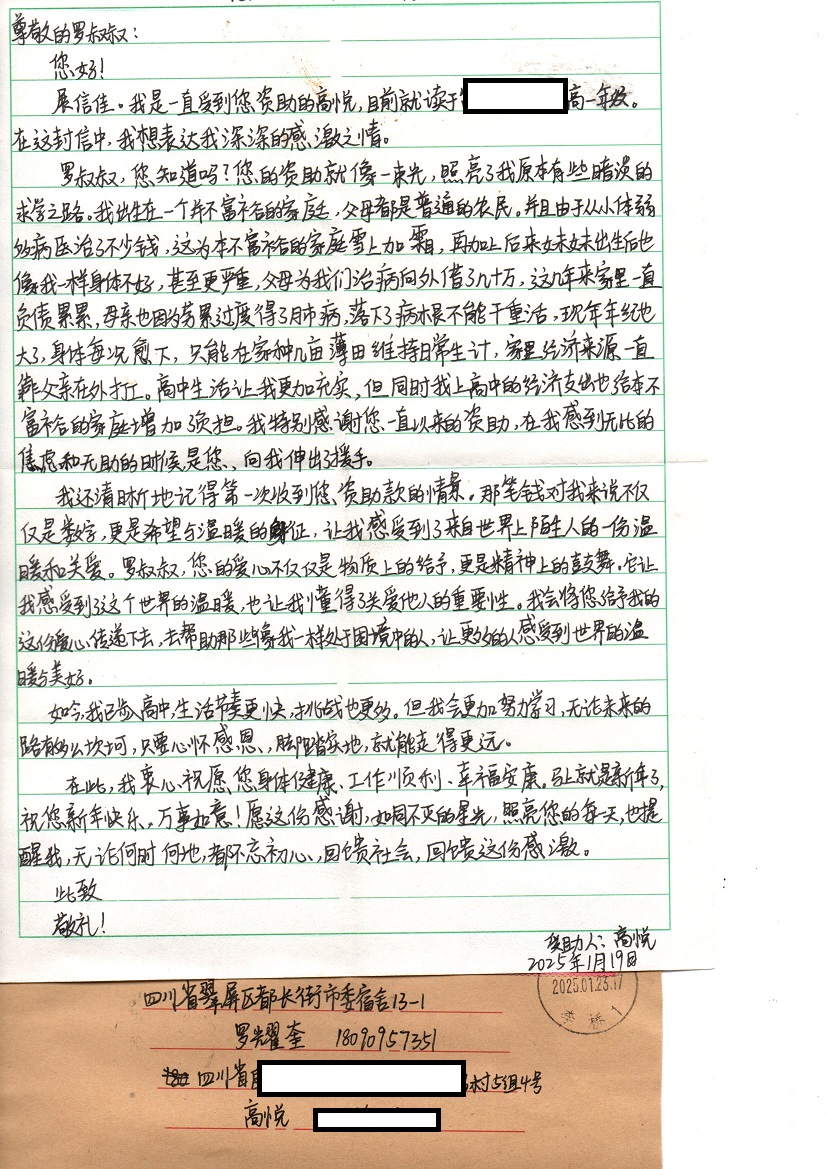 尊敬的罗叔叔:
您好!
展信佳。我是一直受到您资助的高悦,目前就读于 高一年级。
在这封信中,我想表达我深深的感激之情。
罗叔叔,您知道吗?您的资助就像一束光,照亮了我原本有些暗淡的
求学之路。我出生在一个并不富裕的家庭,父母都是普通的农民。并且由于从小体弱
多病医治了不少钱,这为本不富裕的家庭雪上加霜,再加上后来妹妹出生后也
像我一样身体不好,甚至更严重,父母为我们治病向外借了几十万,这几年来家里一直
负债累累,母亲也因为劳累过度得了肺病,落下了病根不能干重活,现年年纪也
大了,身体每况愈下,只能在家种几亩薄田维持日常生计,家里经济来源一直
靠父亲在外打工。高中生活让我更加充实,但同时我上高中的经济支出也给本不
富裕的家庭增加了负担。我特别感谢您一直以来的资助,在我感到无比的
焦虑和无助的时候是您、向我伸出了援手。
我还清晰地记得第一次收到您、资助款的情景。那笔钱对我来说不仅
仅是数字,更是希望与温暖的象征,让我感受到了来自世界上陌生人的一份温
暖和关爱。罗叔叔,您的爱心不仅仅是物质上的给予,更是精神上的鼓舞。它让
我感受到了这个世界的温暖,也让我懂得了关爱他人的重要性。我会将您给予我的
这份爱心传递下去,去帮助那些像我一样处于困境中的人,让更多的人感受到世界的温
暖与美好。
如今,我已步入高中,生活节奏更快,挑战也更多。但我会更加努力学习,无论未来的
路有多么坎坷,只要心怀感恩、,脚踏实地,就能走得更远。
在此,我衷心祝愿您身体健康、工作顺利、幸福安康。马上就是新年了,
祝您新年快乐,万事如意!愿这份感谢,如同不灭的星光,照亮您的每一天,也提
醒我,无论何时何地,都不忘初心,回馈社会,回馈这份感激。
此致
敬礼!
受助人:高悦
2025年1月19日
2025.01.23.17
桥 1
四川省翠屏区都长街市委宿舍13-1
罗光耀奎 18090957351
四川省 村5组4号
高悦